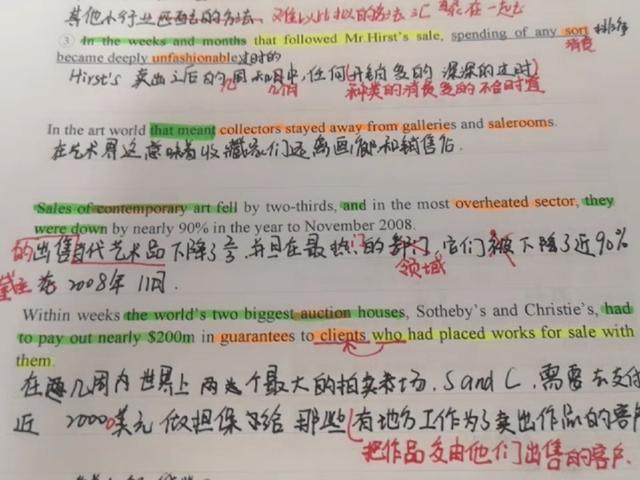 ③ In the weeks and months that followed Mr.Hirst's sale, spending of any sort
消费
became deeply unfashionable过时的
Hirst's 卖出之后的几周和几个月中，任何(开销多的 深深的过时)
种类的消费多的不合时宜
In the art world that meant collectors stayed away from galleries and salerooms.
在艺术界这意味着收藏家们远离画廊和销售
Sales of contemporary art fell by two-thirds, and in the most overheated sector, they
were down by nearly 90% in the year to November 2008.
的出售当代艺术品下降了⅔ 并且在最热门的部门，它们被下降了近90%
领域
在 2008年 11月.
Within weeks the world's two biggest auction houses, Sotheby's and Christie's, had
to pay out nearly $200m in guarantees to clients who had placed works for sale with
them.
在几周内 世界上 两个最大的拍卖市场，S and C，需要去支付
近 20000美元 做担保 给 那些(有地方工作为了卖出作品的客户
把作品交由他们出售的客户.